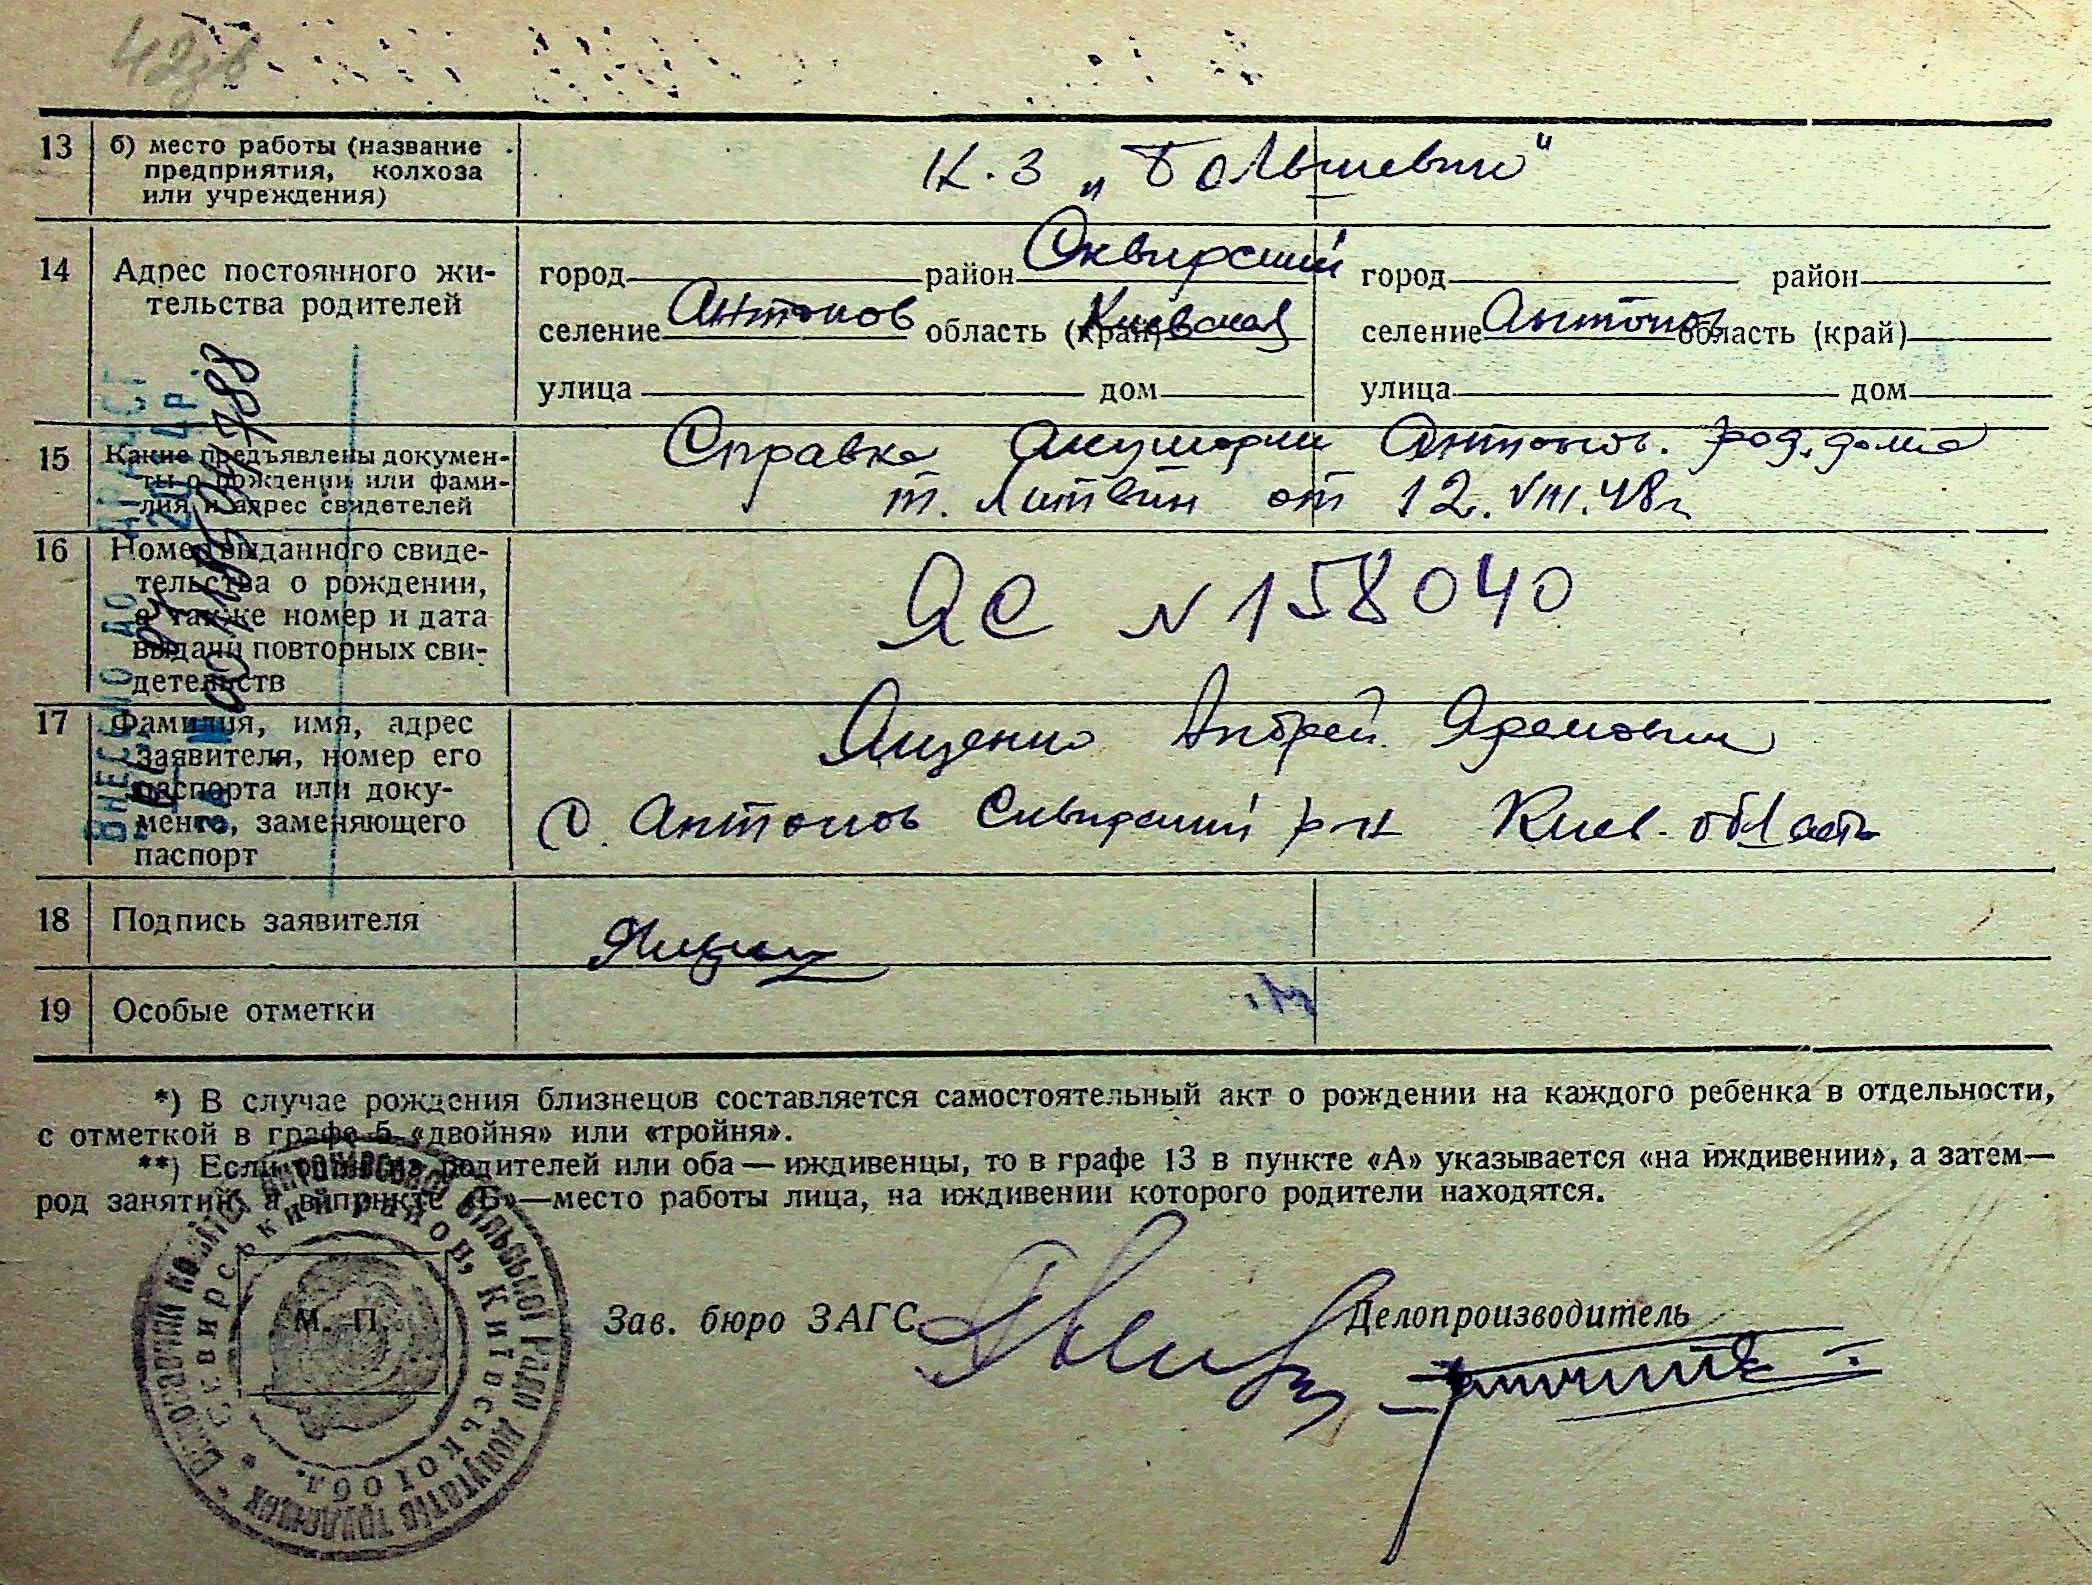 42зв
13 б) место работы (название предприятия, колхоза или учреждения)
К.З „Большевик"
14 Адрес постоянного жительства родителей
город район Сквирский город район
селение Антонов область (край) Киевская селение Антонов область (край)
улица дом улица дом
15 Какие предъявлены документы о рождении или фамилия и адрес свидетелей
Справка акушерки Антонов. род. дома
т. Литвин от 12.VIII.48г
16 Номер выданного свидетельства о рождении, а также номер и дата выдачи повторных свидетельств
ЯС N 158040
17 Фамилия, имя, адрес заявителя, номер его паспорта или документа, заменяющего паспорт
Ященко Андрей Яремович
С. Антонов Сквирский р-н Киев. область
18 Подпись заявителя
19 Особые отметки
*) В случае рождения близнецов составляется самостоятельный акт о рождении на каждого ребенка в отдельности,
с отметкой в графе 5 «двойня» или «тройня».
**) Если один из родителей или оба — иждивенцы, то в графе 13 в пункте «А» указывается «на иждивении», а затем—
род занятий, а в пункте «Б»—место работы лица, на иждивении которого родители находятся.
М. П.
Зав. бюро ЗАГС Делопроизводитель
ВНЕСЕНО ДО ДРАЦСГ
Сквирський район, Київської обл.
сільської Ради депутатів трудящих